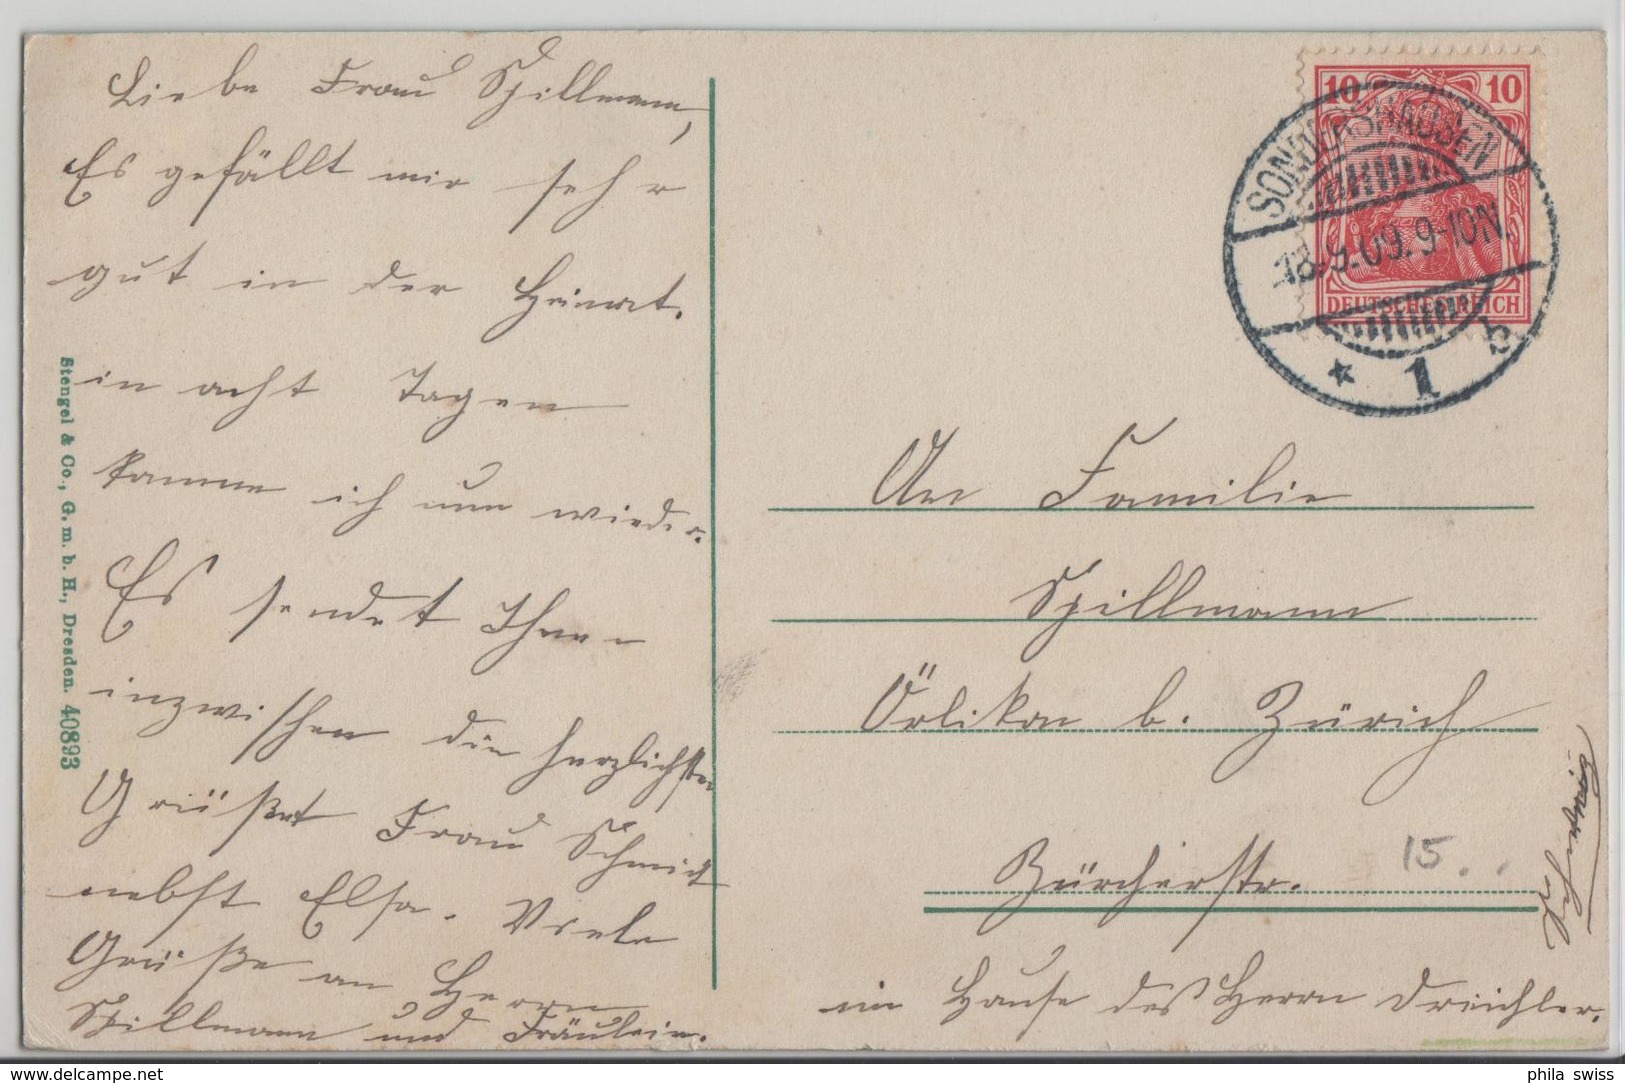 Liebe Frau Spillmann,
Es gefällt mir sehr
gut in der Heimat.
in acht Tagen
komme ich nun wieder.
Es sendet Ihnen
inzwischen die herzlichsten
Grüße Frau Schmidt
nebst Elsa. Viele
Grüße an Herrn
Spillmann und Fräulein.
Stengel & Co., G. m. b. H., Dresden. 40893
10 10
DEUTSCHES REICH
SONDERSHAUSEN
18.9.09. 9-10N.
* 1 b
An Familie
Spillmann
Örlikon b. Zürich
Zürcherstr.
15..
im Hause des Herrn Dreichler.
Schweiz
phila swiss
www.delcampe.net